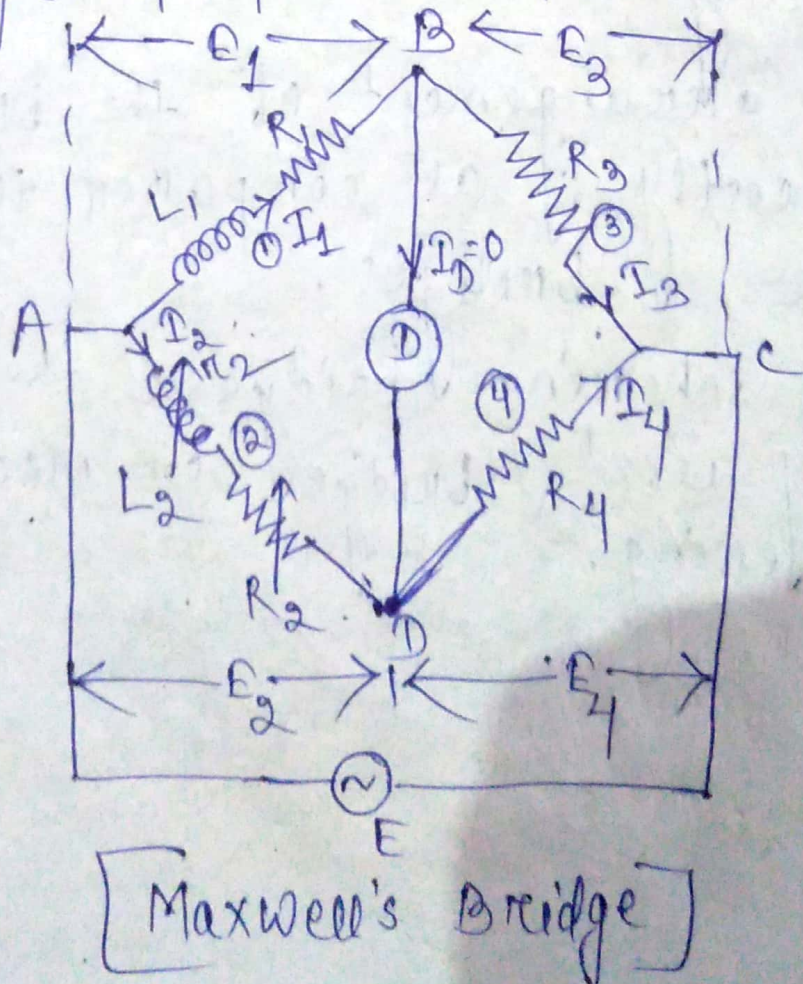 E1 B E3
R1 R3
L1 ① I1 ③
ID=0 I3
A I2 D C
r2 ④ I4
② R4
L2
R2
D
E2 E4
~
E
[Maxwell's Bridge]